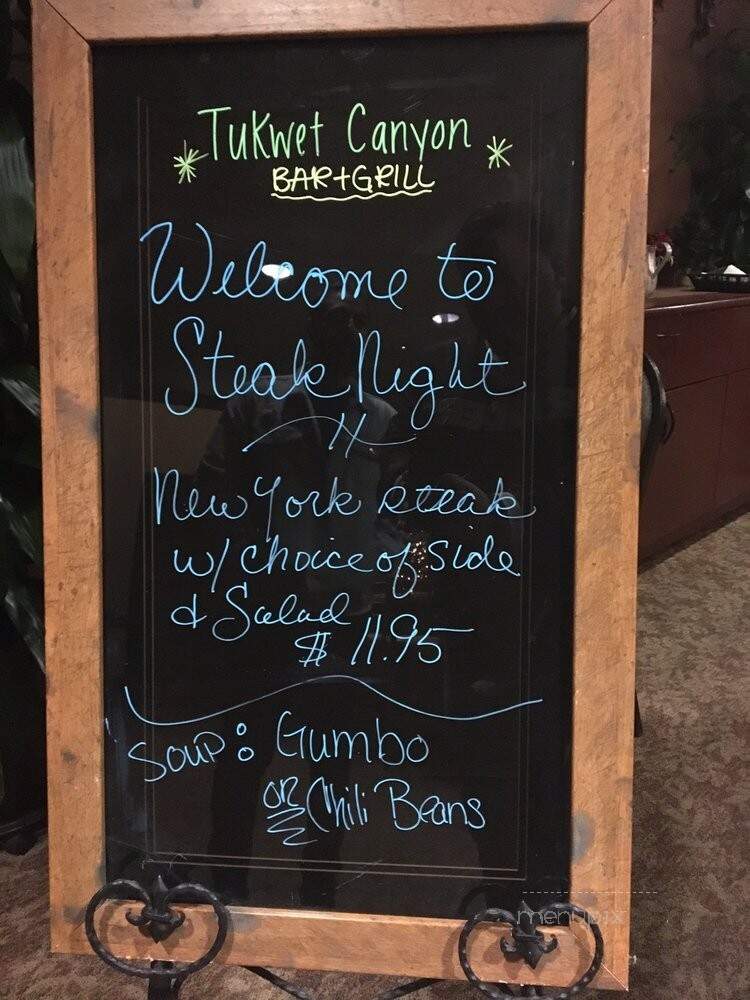 Tukwet Canyon
BAR+GRILL
Welcome to
Steak Night
New York steak
w/ choice of side
& Salad
$ 11.95
SOUP: Gumbo
OR Chili Beans
menupix